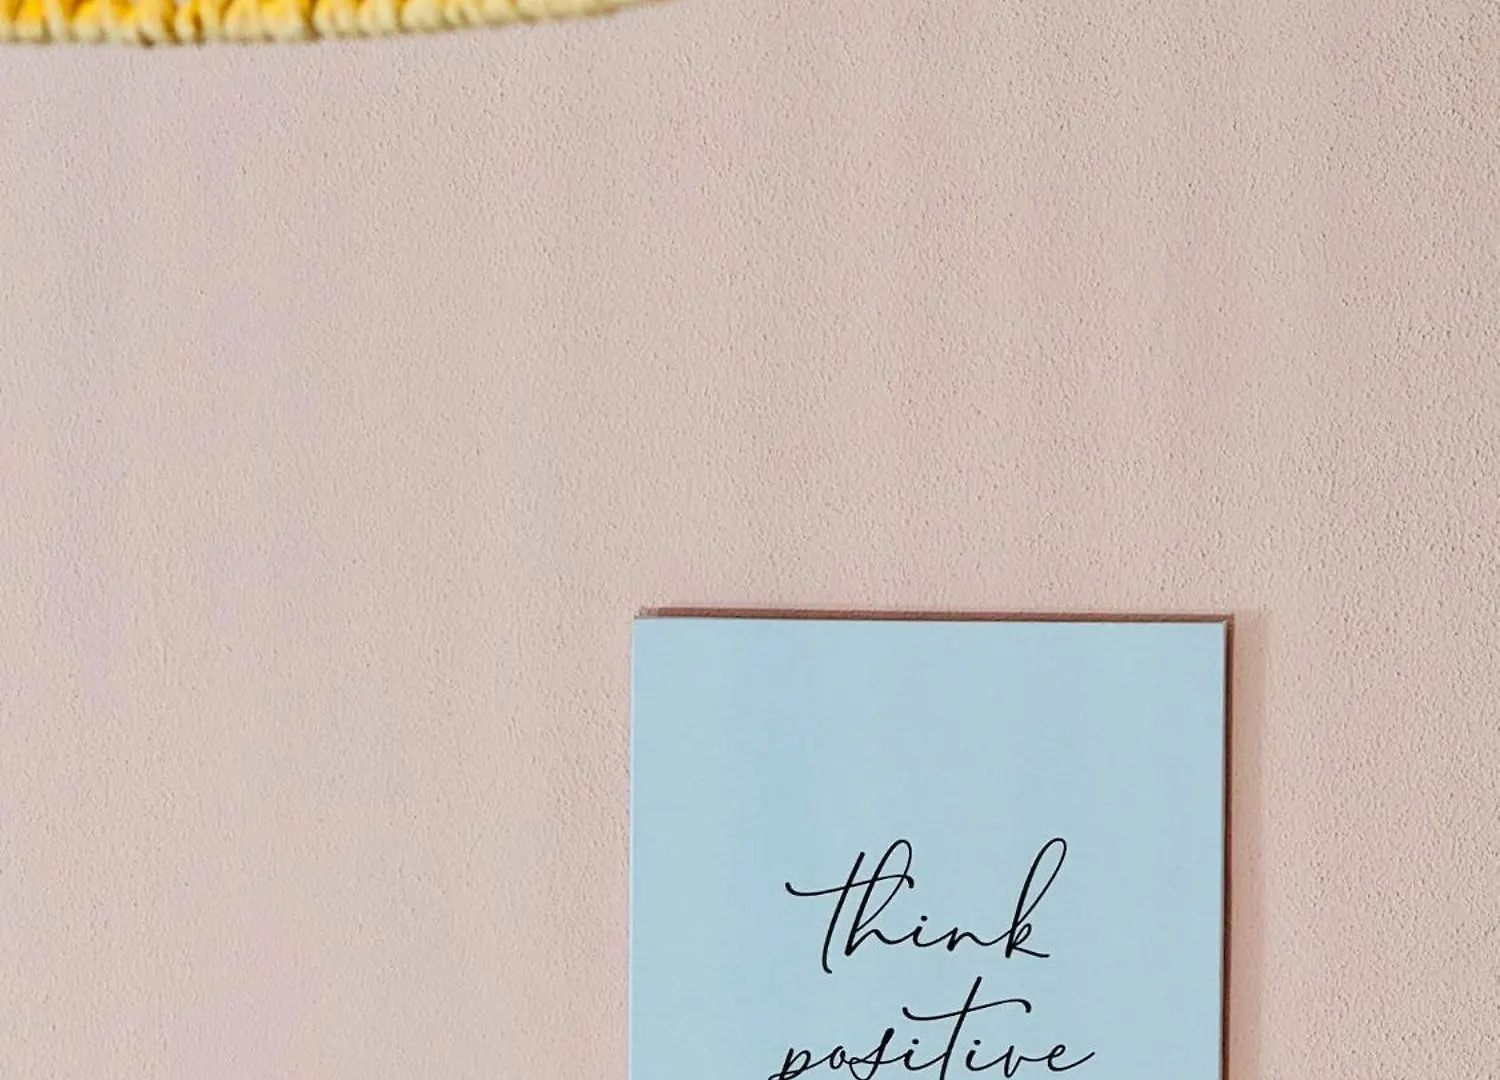 think
positive